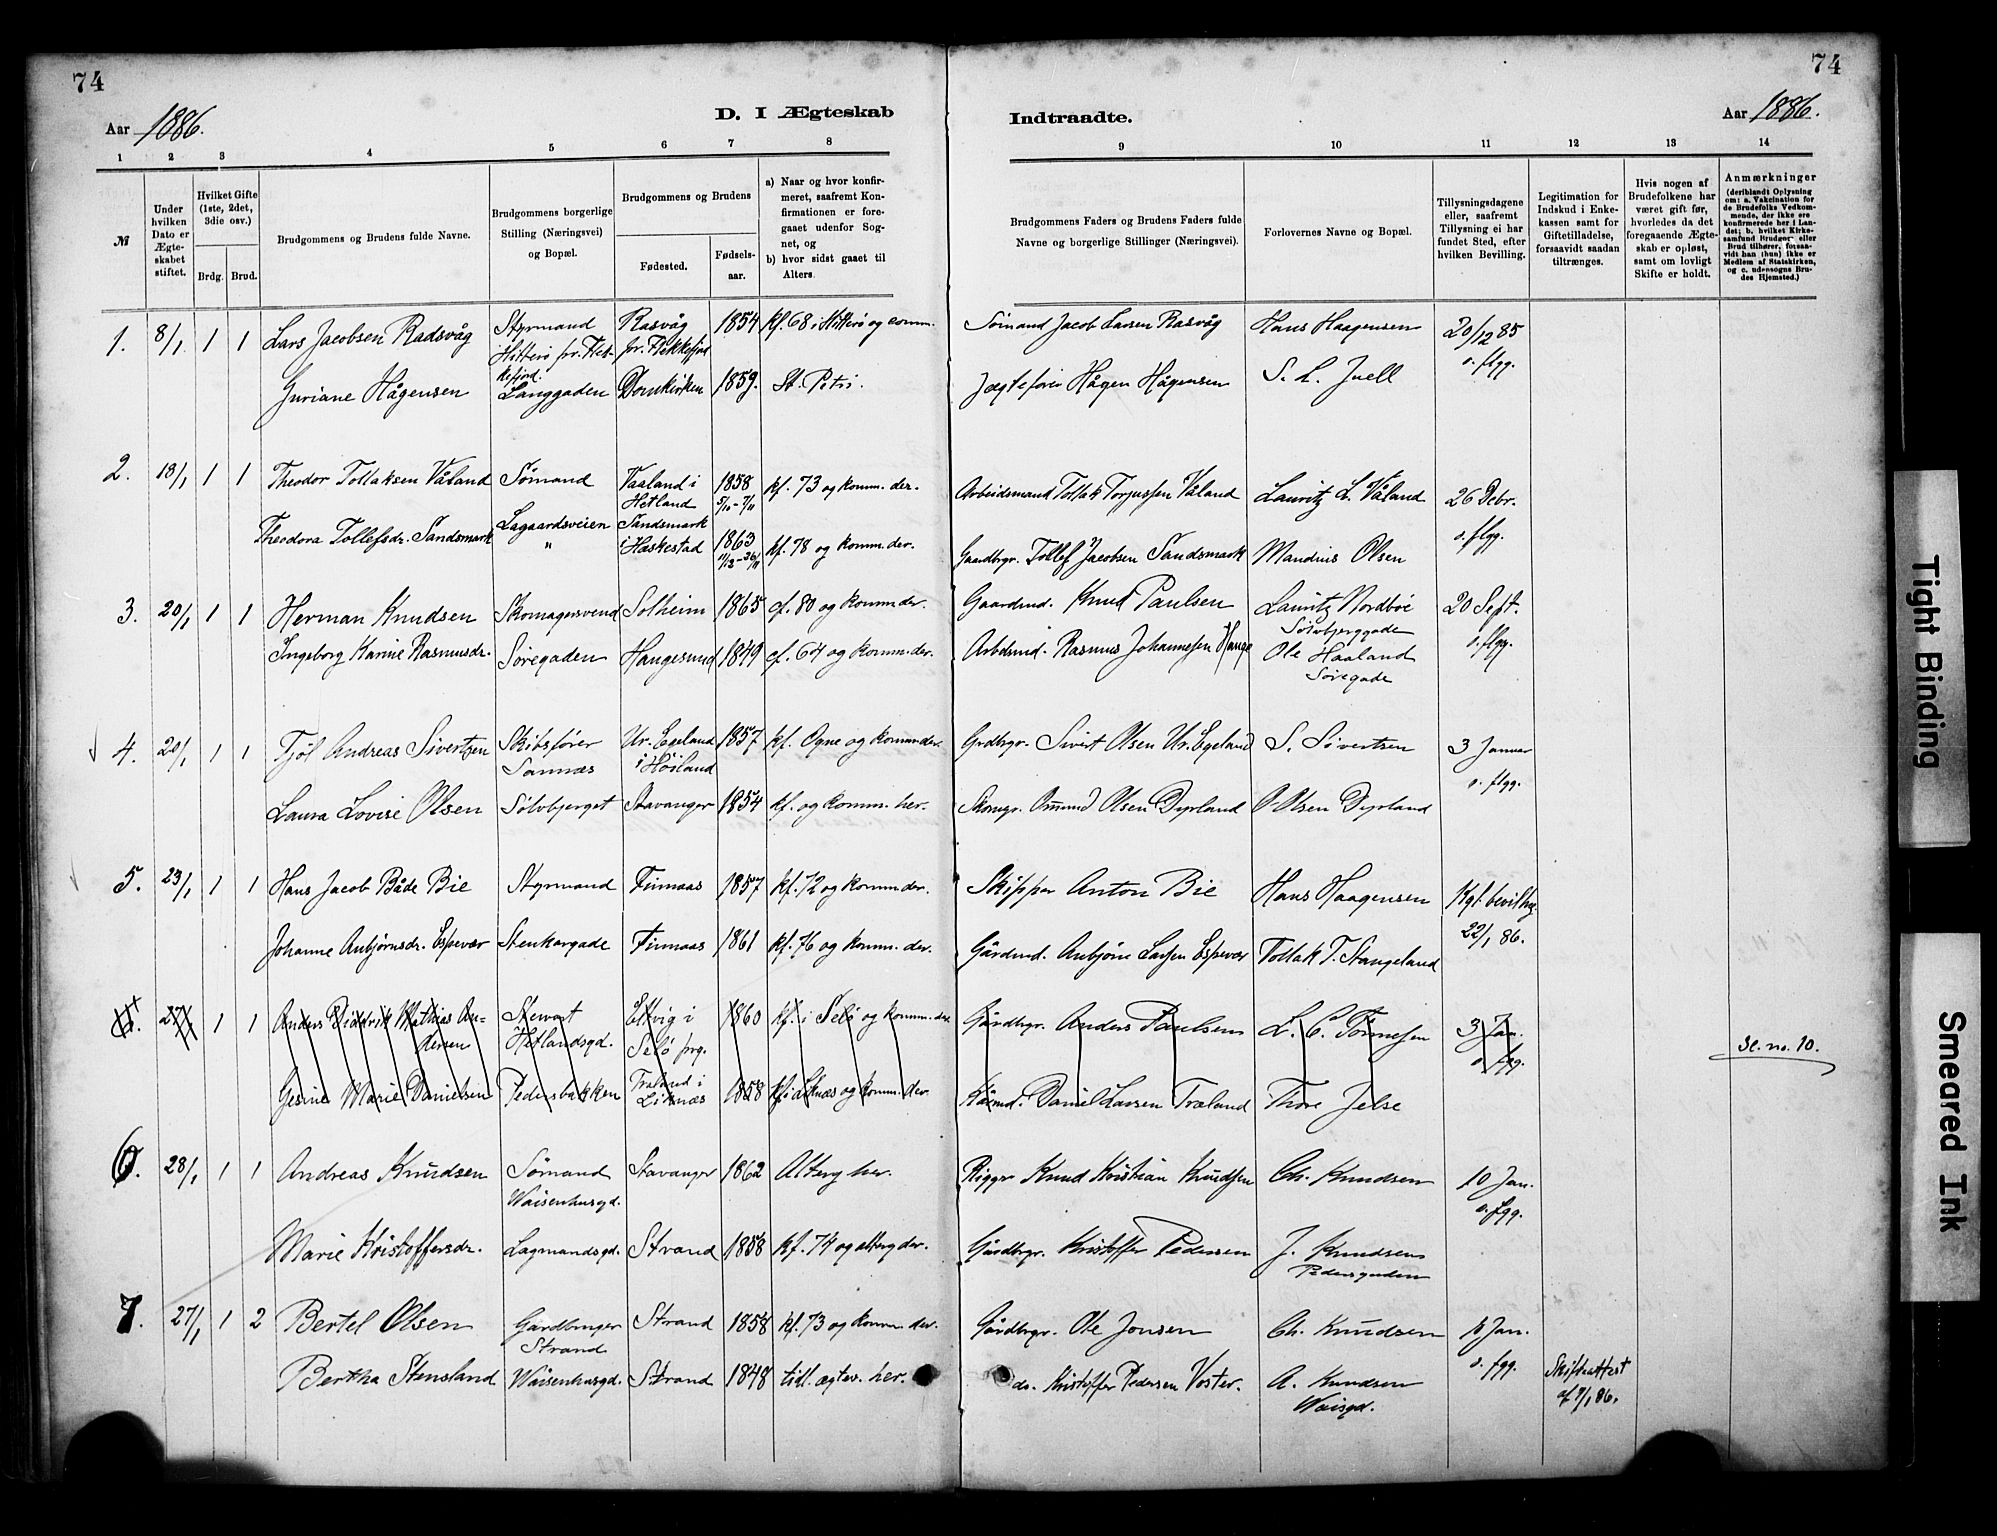 74
74
Aar 1886.
D. I Ægteskab
Indtraadte.
Aar 1886.
1 2 3 4 5 6 7 8 9 10 11 12 13 14
№
Under hvilken Dato er Ægteskabet stiftet.
Hvilket Gifte (1ste, 2det, 3die osv.)
Brdg. Brud.
Brudgommens og Brudens fulde Navne.
Brudgommens borgerlige Stilling (Næringsvei) og Bopæl.
Brudgommens og Brudens
Fødested.
Fødselsaar.
a) Naar og hvor konfirmeret, saafremt Konfirmationen er foregaaet udenfor Sognet, og
b) hvor sidst gaaet til Alters.
Brudgommens Faders og Brudens Faders fulde Navne og borgerlige Stillinger (Næringsvei).
Forlovernes Navne og Bopæl.
Tillysningsdagene eller, saafremt Tillysning ei har fundet Sted, efter hvilken Bevilling.
Legitimation for Indskud i Enkekassen samt for Giftetilladelse, forsaavidt saadan tiltrænges.
Hvis nogen af Brudefolkene har været gift før, hvorledes da det foregaaende Ægteskab er opløst, samt om lovligt Skifte er holdt.
Anmærkninger
(deriblandt Oplysning om: a. Vakcination for de Brudefolks Vedkommende, der ikke ere konfirmerede her i Landet; b. hvilket Kirkesamfund Brudgom eller Brud tilhører, forsaavidt han (hun) ikke er Medlem af Statskirken, og c. udensogns Brudes Hjemsted.)
1. 8/1 1 1 Lars Jacobsen Radsvåg Styrmand Rasvåg 1854 kf. 68 i Hitterø og comm. Sømand Jacob Larsen Rasvåg Hans Haagensen 20/12 85
Hitterø pr. Flekkefjord. pr. Flekkefjord o. flgg.
Guriane Hågensen Langgaden Domkirken 1859. St. Petri. Jægtefører Hågen Hågensen S. L. Juell
2. 18/1 1 1 Theodor Tollaksen Våland Sømand Vaaland i Hetland 1858 kf. 73 og komm. der. Arbeidsmand Tollak Torjussen Våland Lauritz L. Våland 26 Debr.
5/10 - 7/11 o. flgg.
Theodora Tollefsdr. Sandsmark Lagaardsveien Sandsmark i Heskestad 1863 kf. 78 og komm. der. Gaardbgr. Tollef Jacobsen Sandsmark Mandius Olsen
"
3. 20/1 1 1 Herman Knudsen Skomagersvend Solheim 1865 cf. 80 og komm der. Gaardmd. Knud Paulsen Lauritz Nordbøe 20 Sept.
Sølvbjerggade o. flgg.
Ingeborg Karine Rasmusdr. Søregaden Haugesund 1849 cf. 64 og komm. der. Arbdsmd. Rasmus Johannessen Hauge Ole Haaland
Søregade
4. 20/1 1 1 Tjøl Andreas Sivertsen Skibsfører Ur. Egeland 1857 kf. Ogne og komm der. Grdbrgr. Sivert Olsen Ur. Egeland S. Sivertsen 3 Januar
Sannæs i Høiland o. flgg.
Laura Lovise Olsen Sølvbjerget Stavanger 1854 kf. og komm. her. Skomgr. Ommund Olsen Dyrland O Olsen Dyrland
5. 23/1 1 1 Hans Jacob Både Bie Styrmand Finnaas 1857 kf. 72 og komm der. Skipper Anton Bie Hans Haagensen Kgl. bevilling
22/1 86.
Johanne Anbjørnsdr. Espevær Stenkargade Finnaas 1861 kf. 76 og komm. der. Gårdmd. Anbjørn Larsen Espevær Tollak T. Stangeland
27/1 1 1 Anders Didrik Mathias Andersen Stewart Hetlandsgd. i Selø prg. 1860 kf. i Selø og komm. der Gårdbrgr. Anders Paulsen L. C. Tønnesen 3 Jan.
o. fgg.
Se. no. 10.
Gesine Marie Danielsen Pedersbakken Træland i Liknæs 1858 kf i Liknæs og komm. der Daniel Larsen Træland Thore Jelse
6. 28/1 1 1 Andreas Knudsen Sømand Stavanger 1862 Alterg her. Rigger Knud Kristian Knudsen Ch. Knudsen 10 Jan.
Waisenhusgd. o. fgg.
Marie Kristoffersdr. Lagmandsgd. Strand 1858 kf. 74 og alterg der. Gårdbrgr. Kristoffer Pedersen J. Knudsen
Pedersgaden
7. 27/1 1 2 Bertel Olsen Gardbruger Strand 1858 kf. 73 og komm der. Gårdbrgr. Ole Jonsen Ch. Knudsen 10 Jan.
Strand o. fgg.
Bertha Stensland Waisenhusgd. Strand 1848 till. ægtev. her. do. Kristoffer Pedersen Voster. A. Knudsen Skifteattest
Waisgd. af 9/1 86.
Tight Binding
Smeared Ink